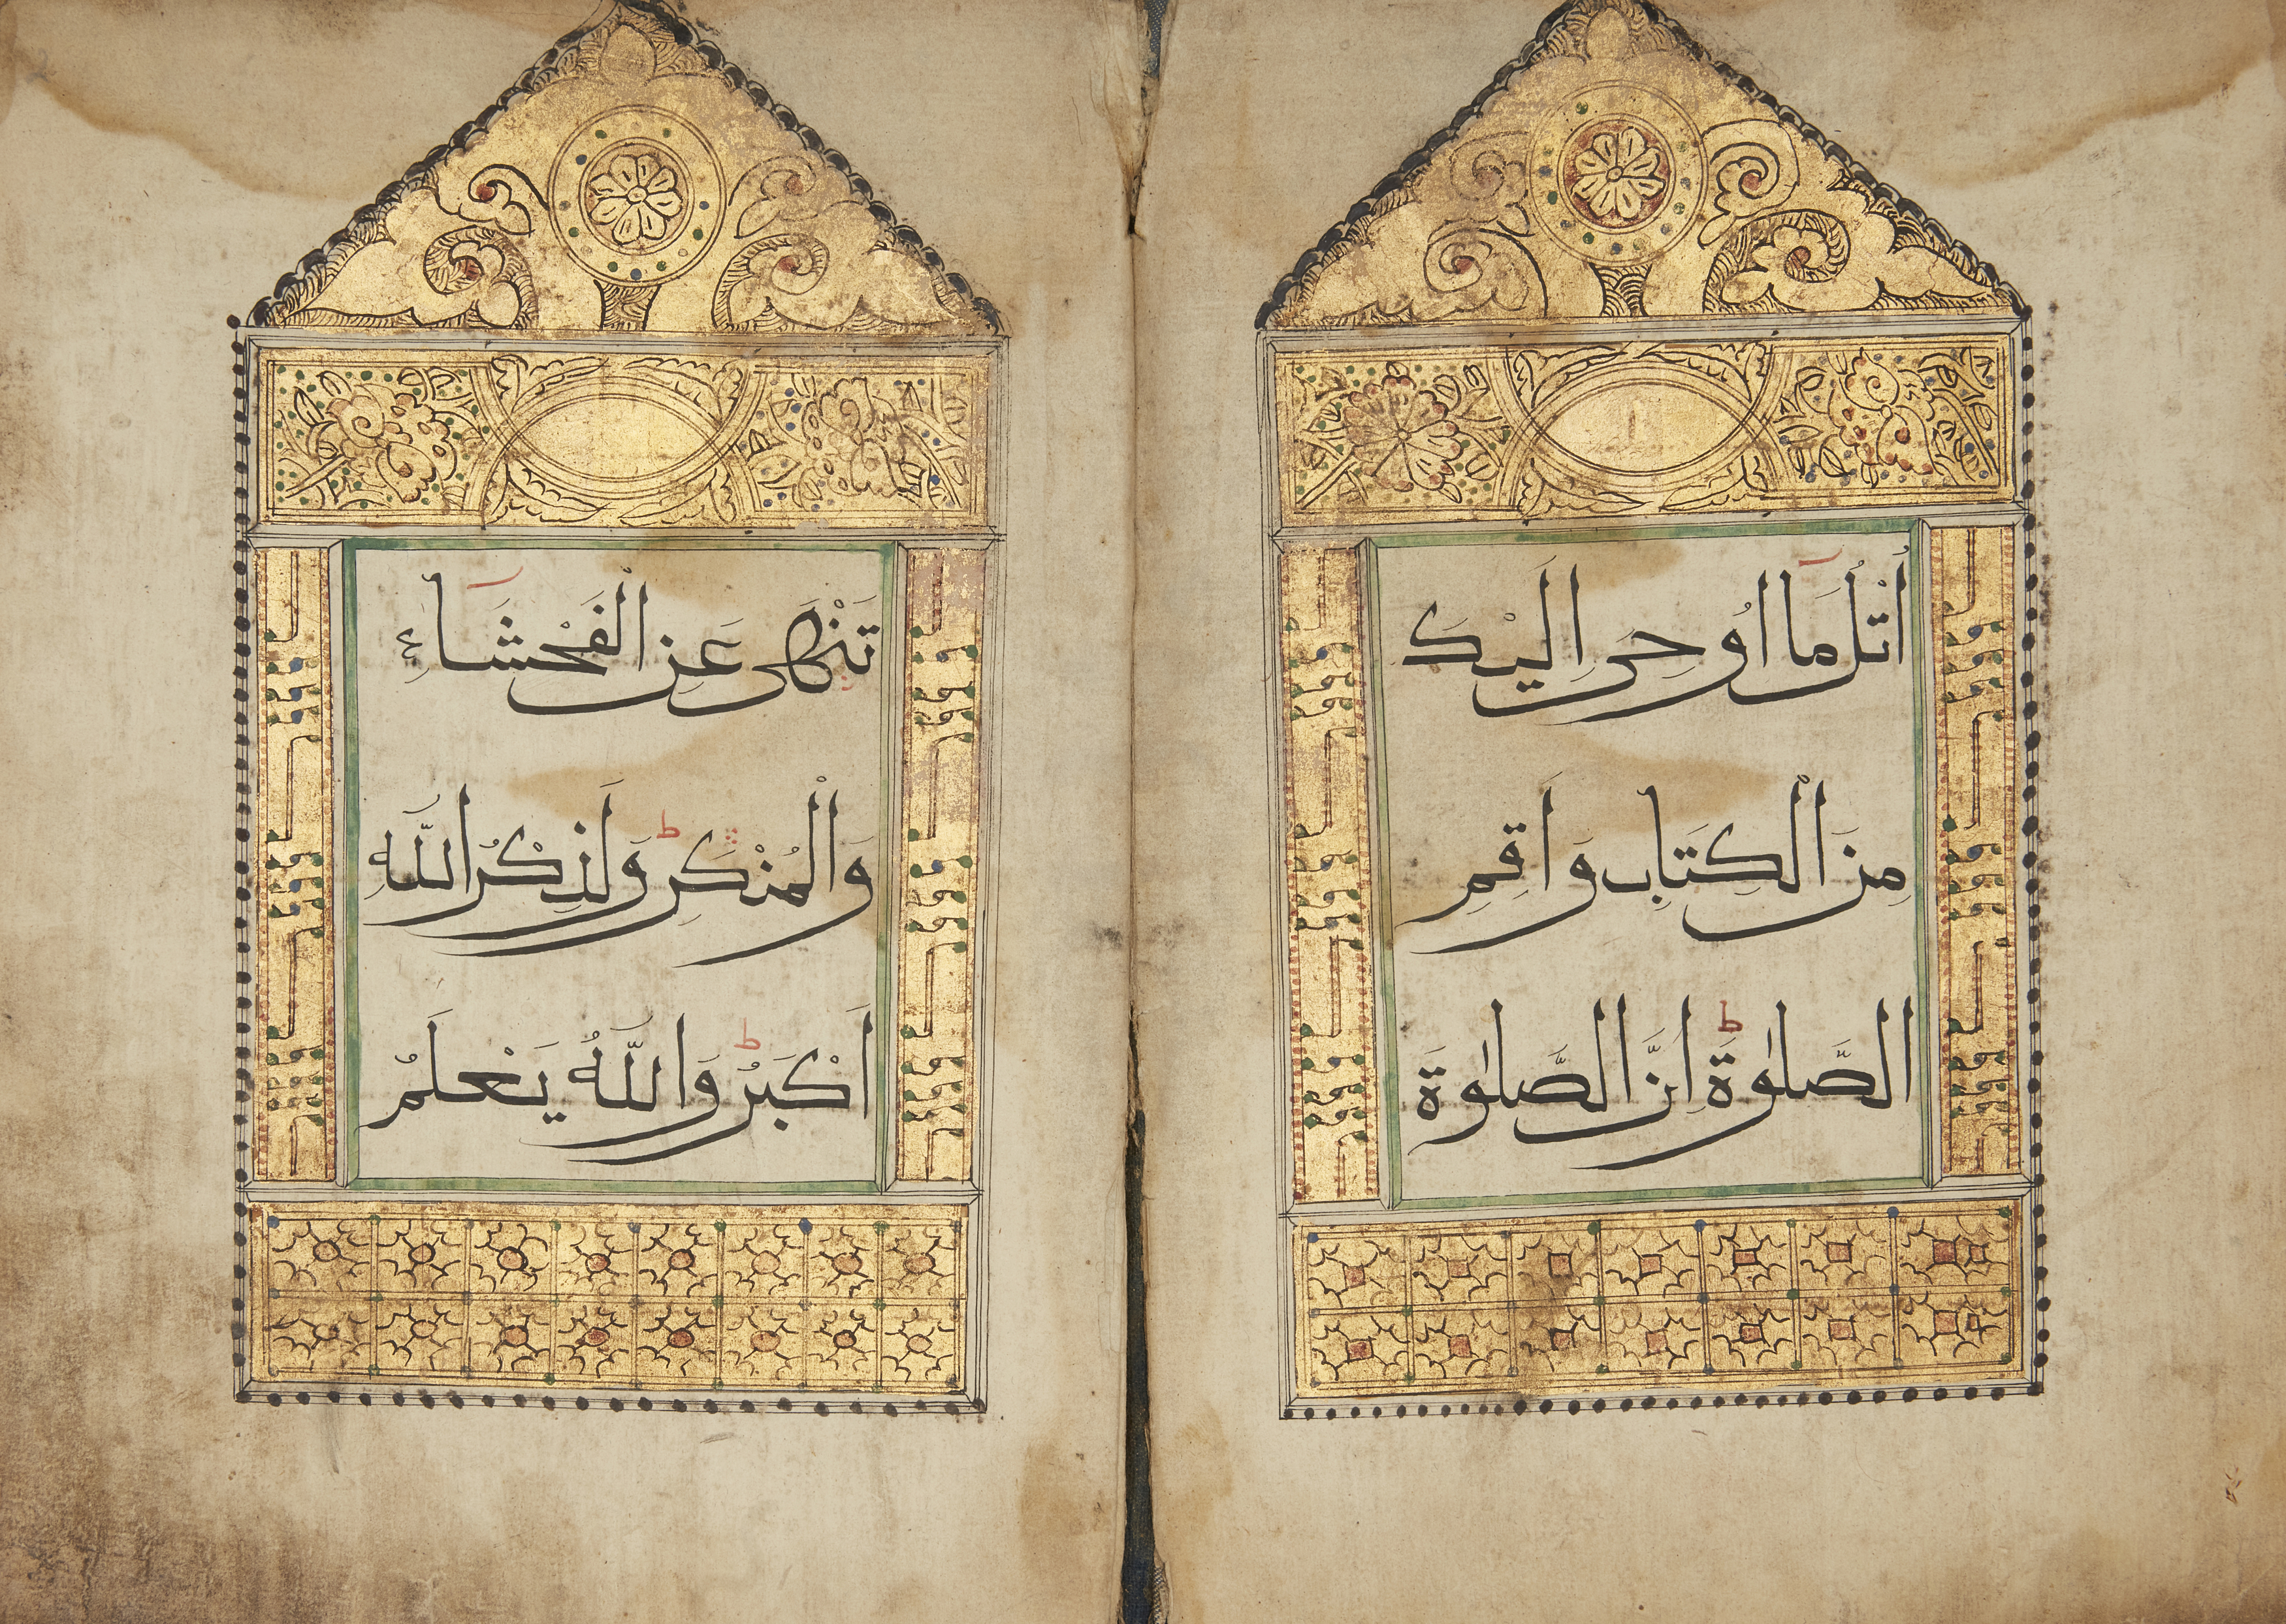 اُتْلُ مَا اُوحِىَ اِلَيْكَ
مِنَ الْكِتَابِ وَاَقِمِ
الصَّلٰوةَ ط اِنَّ الصَّلٰوةَ
تَنْهٰى عَنِ الْفَحْشَاءِ
وَالْمُنْكَرِ ط وَلَذِكْرُ اللّٰهِ
اَكْبَرُ ط وَاللّٰهُ يَعْلَمُ